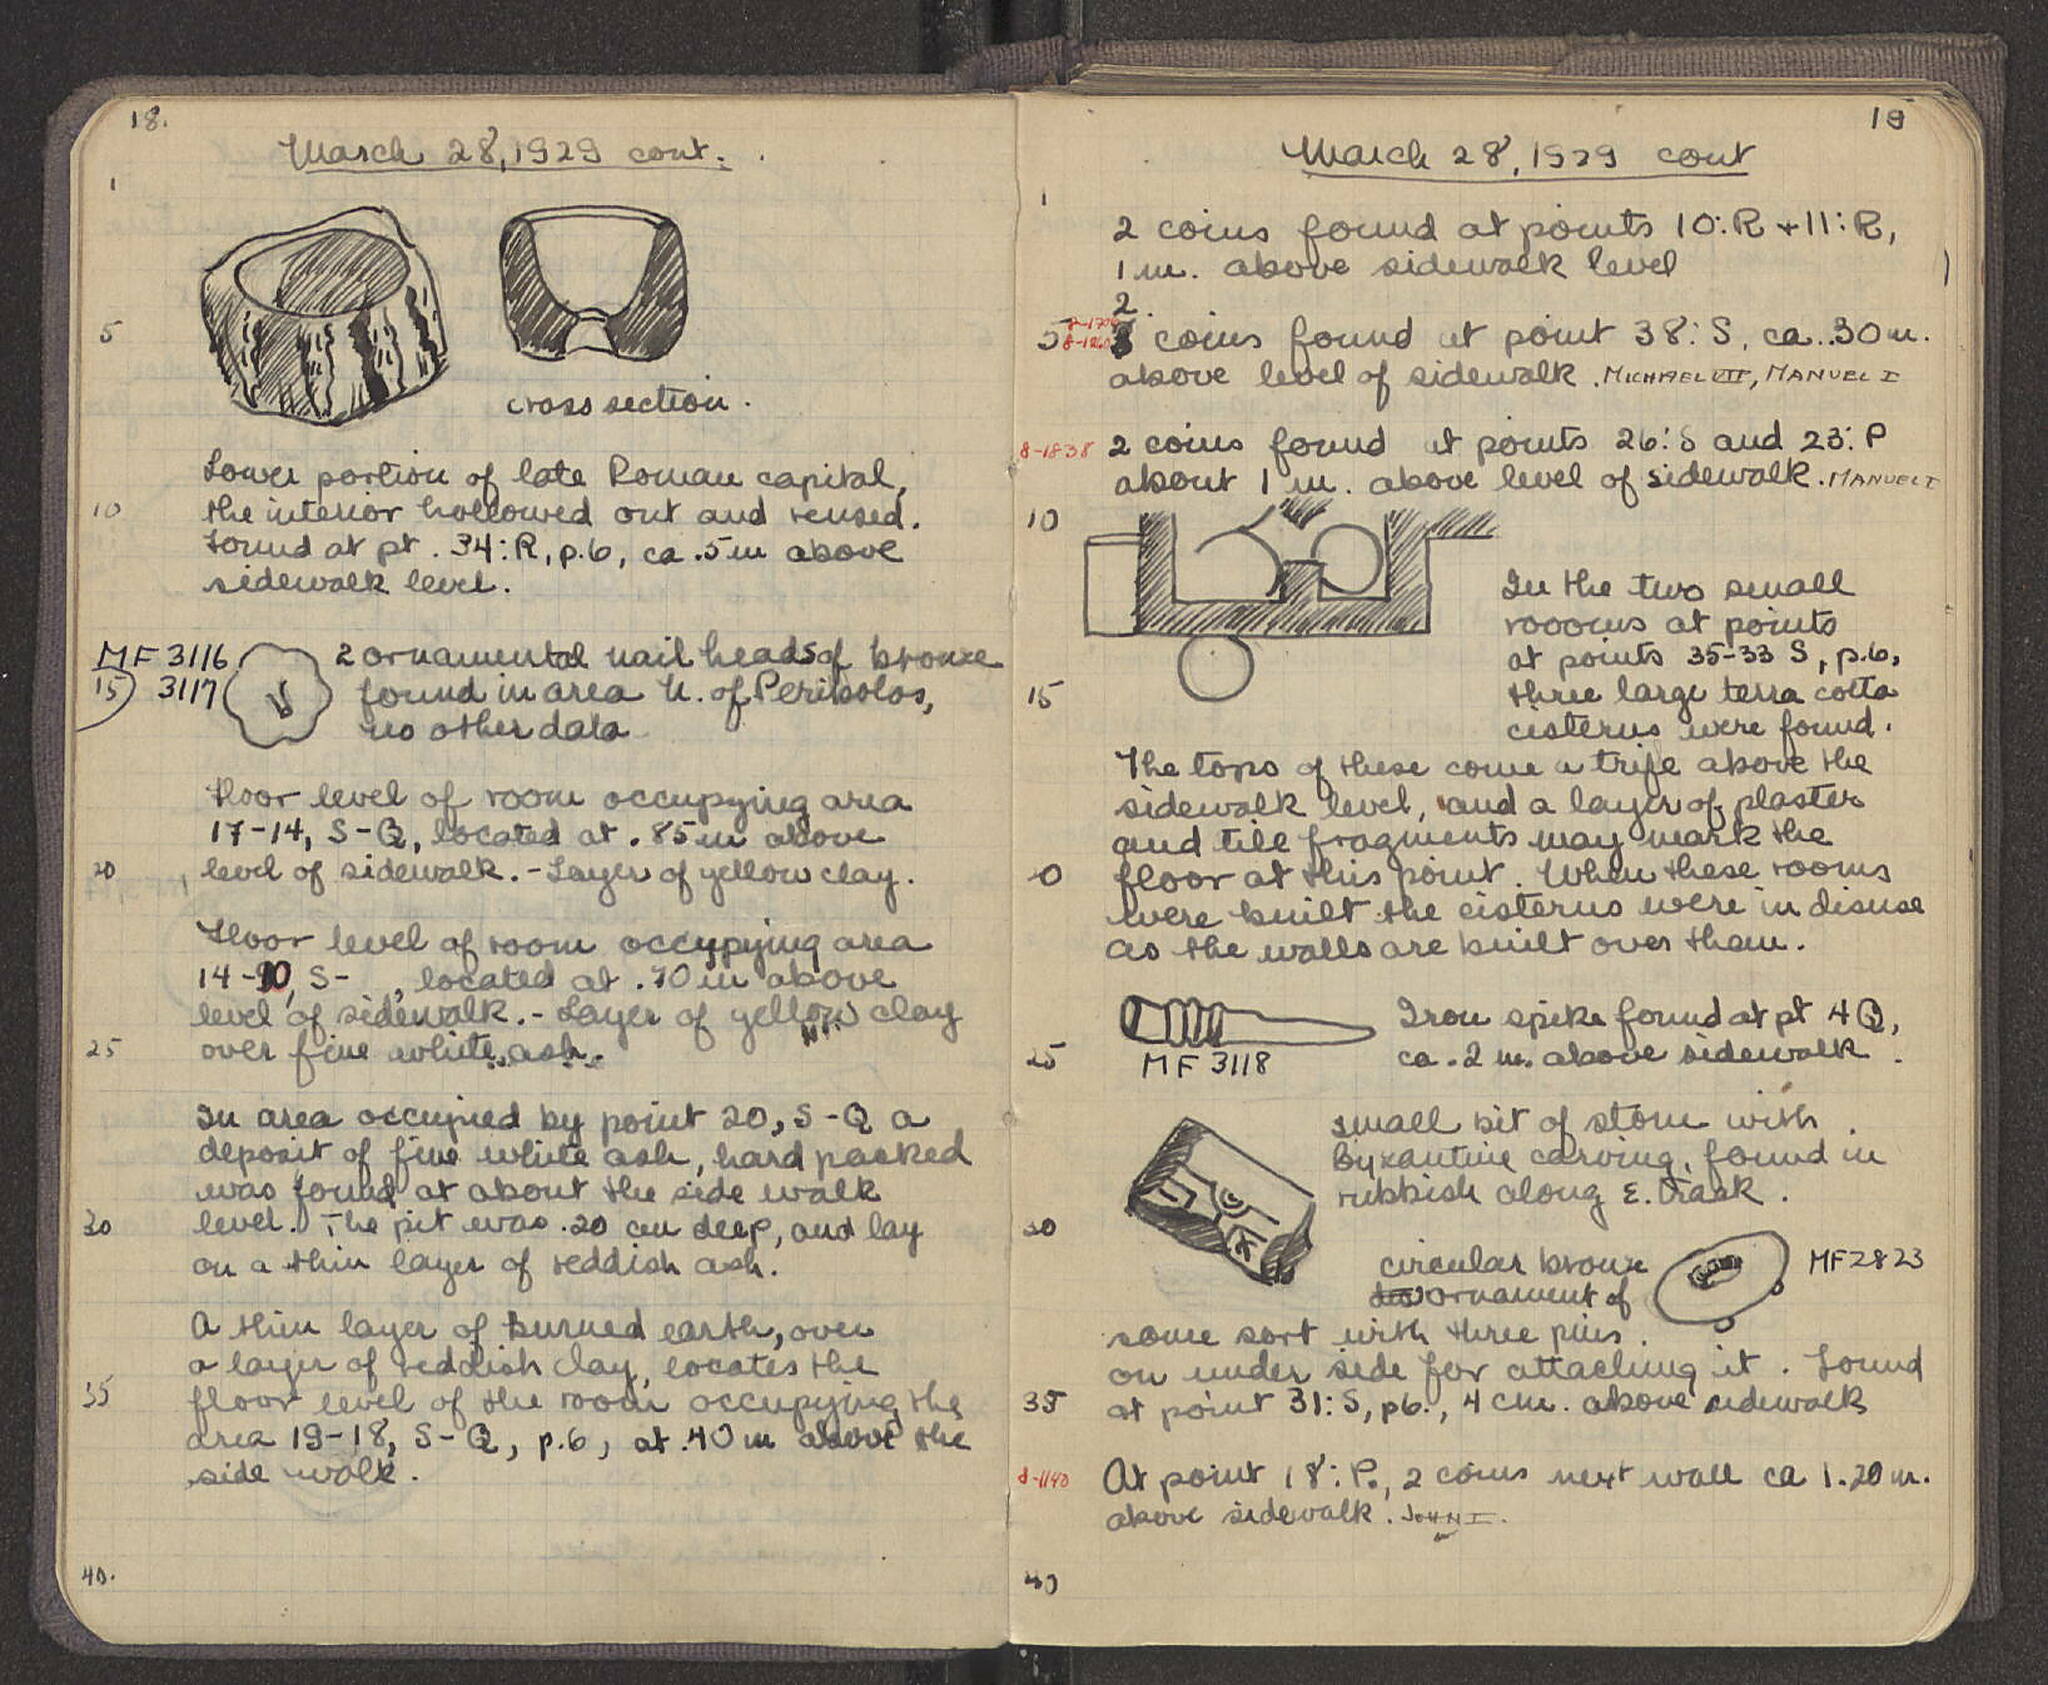 18.
March 28, 1929 cont.
1
5
cross section.
Lower portion of late Roman capital,
10
the interior hollowed out and reused.
Found at pt. 34:R, p.6, ca .5m above
sidewalk level.
MF 3116
15 3117
2 ornamental nail heads of bronze
found in area N. of Peribolos,
no other data
Floor level of room occupying area
17-14, S-Q, located at .85m above
20
level of sidewalk. - Layer of yellow clay.
Floor level of room occupying area
14-10, S- , located at .70m above
level of sidewalk. - Layer of yellow clay
25
over fine white ash.
In area occupied by point 20, S-Q a
deposit of fine white ash, hard packed
was found at about the side walk
30
level. The pit was .20 cm deep, and lay
on a thin layer of reddish ash.
A thin layer of burned earth, over
a layer of reddish clay, locates the
35
floor level of the room occupying the
area 19-18, S-Q, p.6, at .40m above the
side walk.
40.
19
March 28, 1929 cont
1
2 coins found at points 10:R + 11:R,
1 m. above sidewalk level
2
5
coins found at point 38:S, ca. .30m.
above level of sidewalk. MICHAEL VII, MANUEL I
8-1838
2 coins found at points 26:S and 23:P
about 1 m. above level of sidewalk. MANUEL I
10
In the two small
rooms at points
at points 35-33 S, p.6,
15
three large terra cotta
cisterns were found.
The tops of these come a trifle above the
sidewalk level, and a layer of plaster
and tile fragments may mark the
20
floor at this point. When these rooms
were built the cisterns were in disuse
as the walls are built over them.
Iron spike found at pt 4Q,
25
ca .2 m. above sidewalk.
MF 3118
small bit of stone with
Byzantine carving, found in
rubbish along E. track.
30
circular bronze
ornament of
MF 2823
some sort with three pins
on under side for attaching it. Found
35
at point 31:S, p6., 4 cm. above sidewalk
8-1140
At point 18:P., 2 coins next wall ca 1.20m.
above sidewalk. JOHN I.
40